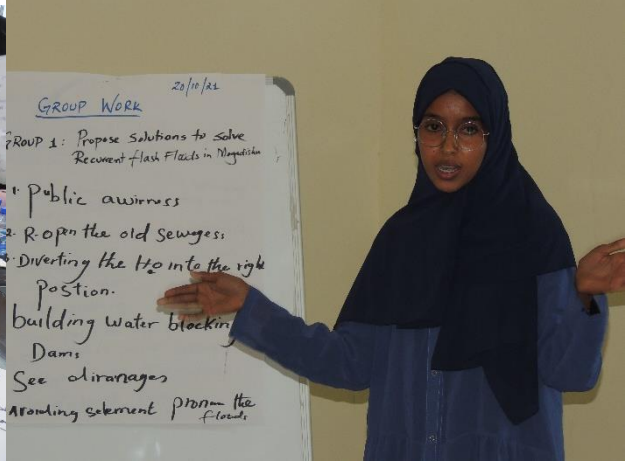 20/10/21
GROUP WORK
GROUP 1: Propose Solutions to solve
Recurrent flash Floods in Mogadishu
1. Public awirness
2. R-open the old sewages.
3. Diverting the H2o into the right
postion.
building water blocking
Dams
See diranages
Avoiding selement pronan the
floods